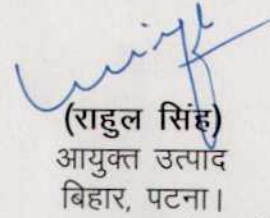 (राहुल सिंह)
आयुक्त उत्पाद
बिहार, पटना।